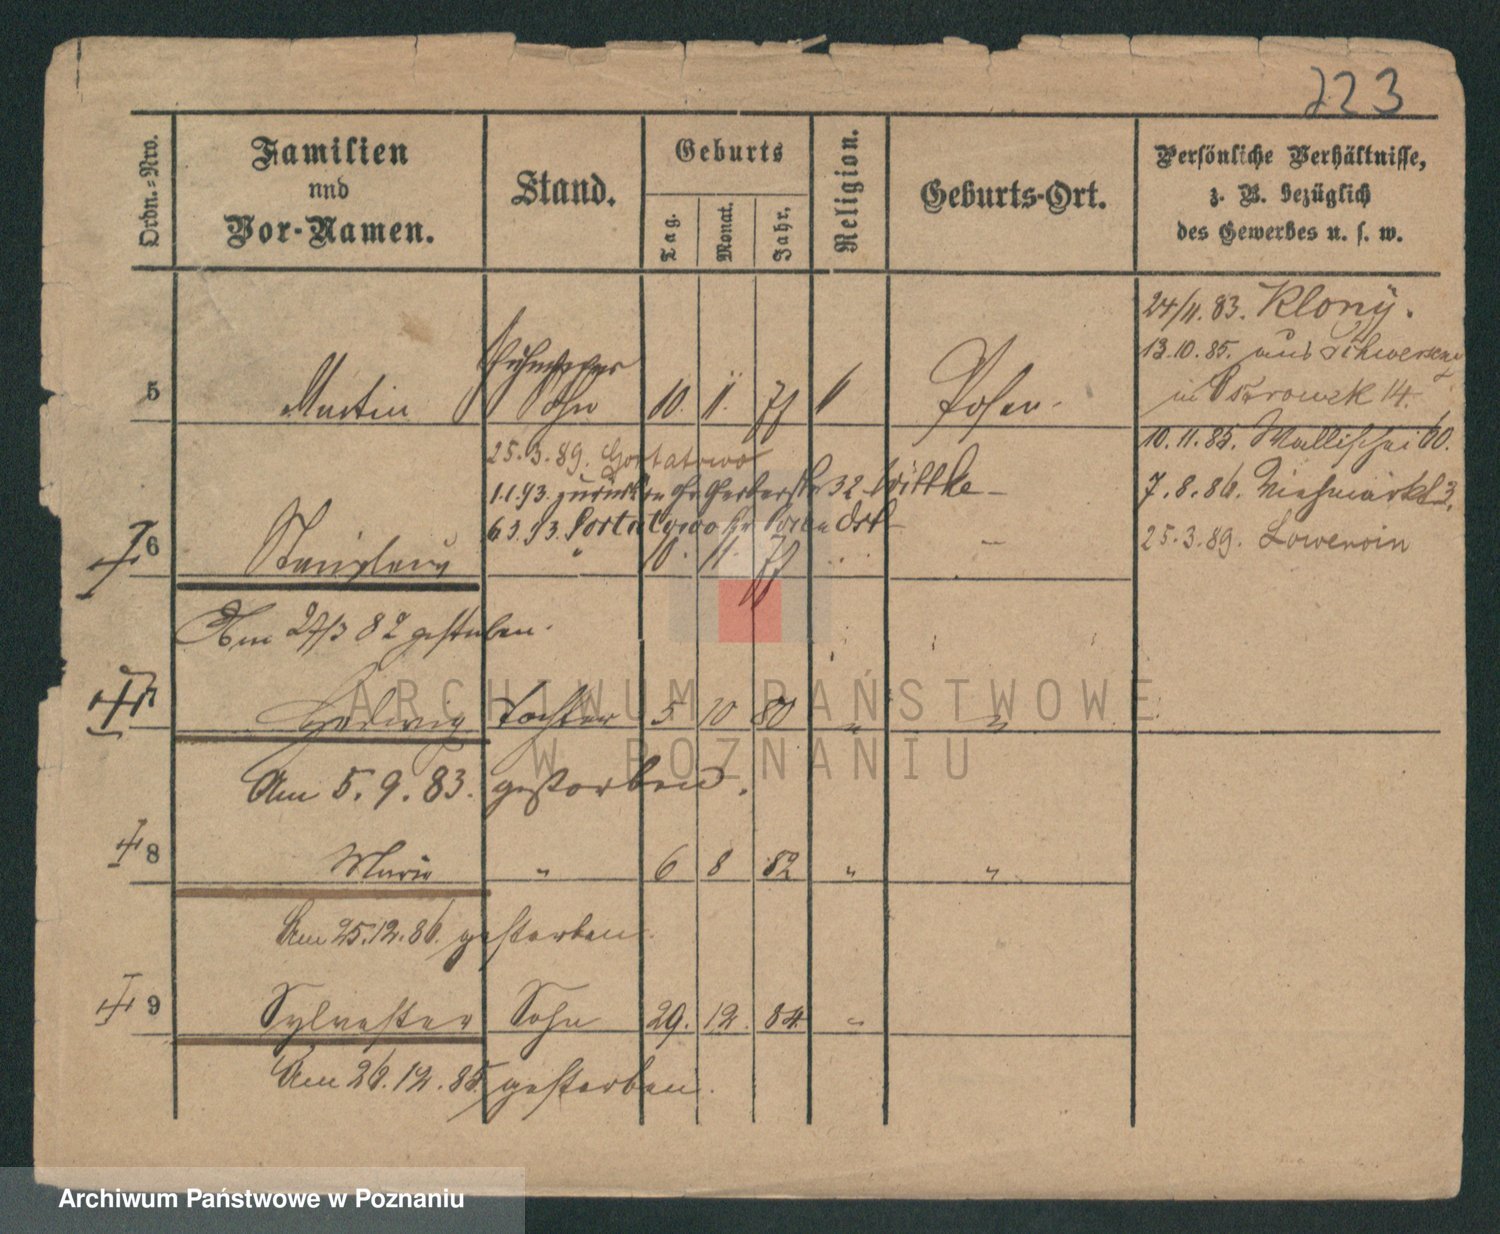 223
Ordn.-Nro.
Familien
und
Vor-Namen.
Stand.
Geburts
Tag.
Monat.
Jahr.
Religion.
Geburts-Ort.
Persönliche Verhältnisse,
z. B. bezüglich
des Gewerbes u. s. w.
24/11. 83. Klony.
13.10.85. aus Schwersenz
in Ostrowek 14.
5 Martin Sohn 10. 11. 77 Posen.
10.11.85. Wallischei 60.
7.8.86. Viehmarkt 3.
25.3.89. Gortatowo
1.1.93. zurück Gerberstr 32 Wittke
6 3.93. Gortatowo
25.3.89. Lowencin
6 Stanislaus " 10. 11. 77 "
Am 27/3 82 gestorben.
Hedwig Tochter 5 10 80 " "
Am 5.9.83. gestorben.
8 Marie " 6 8 82 " "
Am 25.12.86. gestorben.
9 Sylvester Sohn 29. 12. 84. "
Am 26.12.85. gestorben.
ARCHIWUM PAŃSTWOWE
W POZNANIU
Archiwum Państwowe w Poznaniu